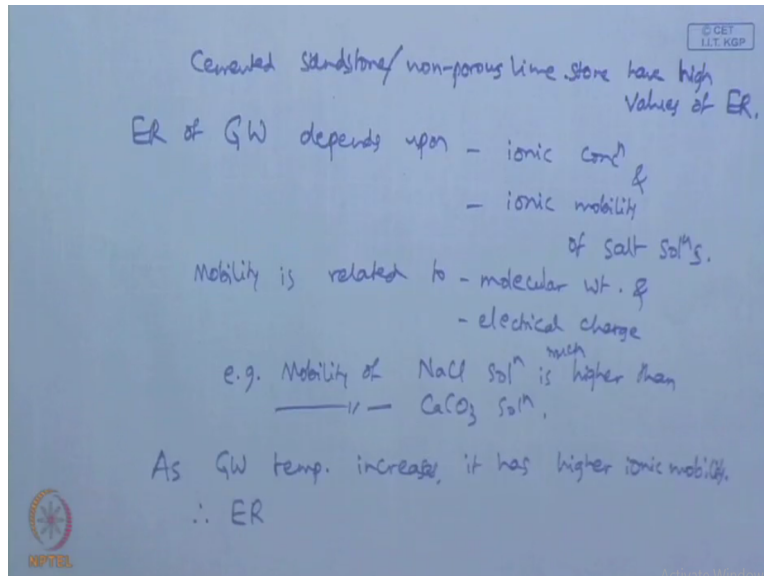 © CET
I.I.T. KGP
Cemented sandstone/ non-porous lime stone have high
values of ER.
ER of GW depends upon - ionic concⁿ
&
- ionic mobility
of salt solⁿs.
Mobility is related to - molecular wt. &
- electrical charge
e.g. Mobility of NaCl solⁿ is much higher than
—— 〃 — CaCO₃ solⁿ.
As GW temp. increases, it has higher ionic mobility.
∴ ER
NPTEL
Activate Windows